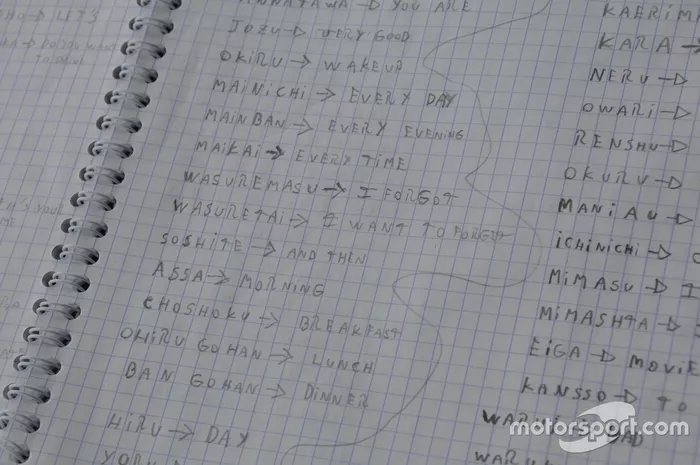 LET'S
YOU ARE
JOZU → VERY GOOD
OKIRU → WAKEUP
MAINICHI → EVERY DAY
MAINBAN → EVERY EVENING
MAIKAI → EVERY TIME
WASUREMASU → I FORGOT
WASURETAI → I WANT TO FORGOT
SOSHITE → AND THEN
ASSA → MORNING
CHOSHOKU → BREAKFAST
OHIRU GOHAN → LUNCH
BAN GOHAN → DINNER
HIRU → DAY
KAERIM
KARA →
NERU →
OWARI →
RENSHU →
OKURU →
MANIAU →
ICHINICHI →
MIMASU → I
MIMASHTA →
EIGA → MOVIE
KANSSO → TO
motorsport.com